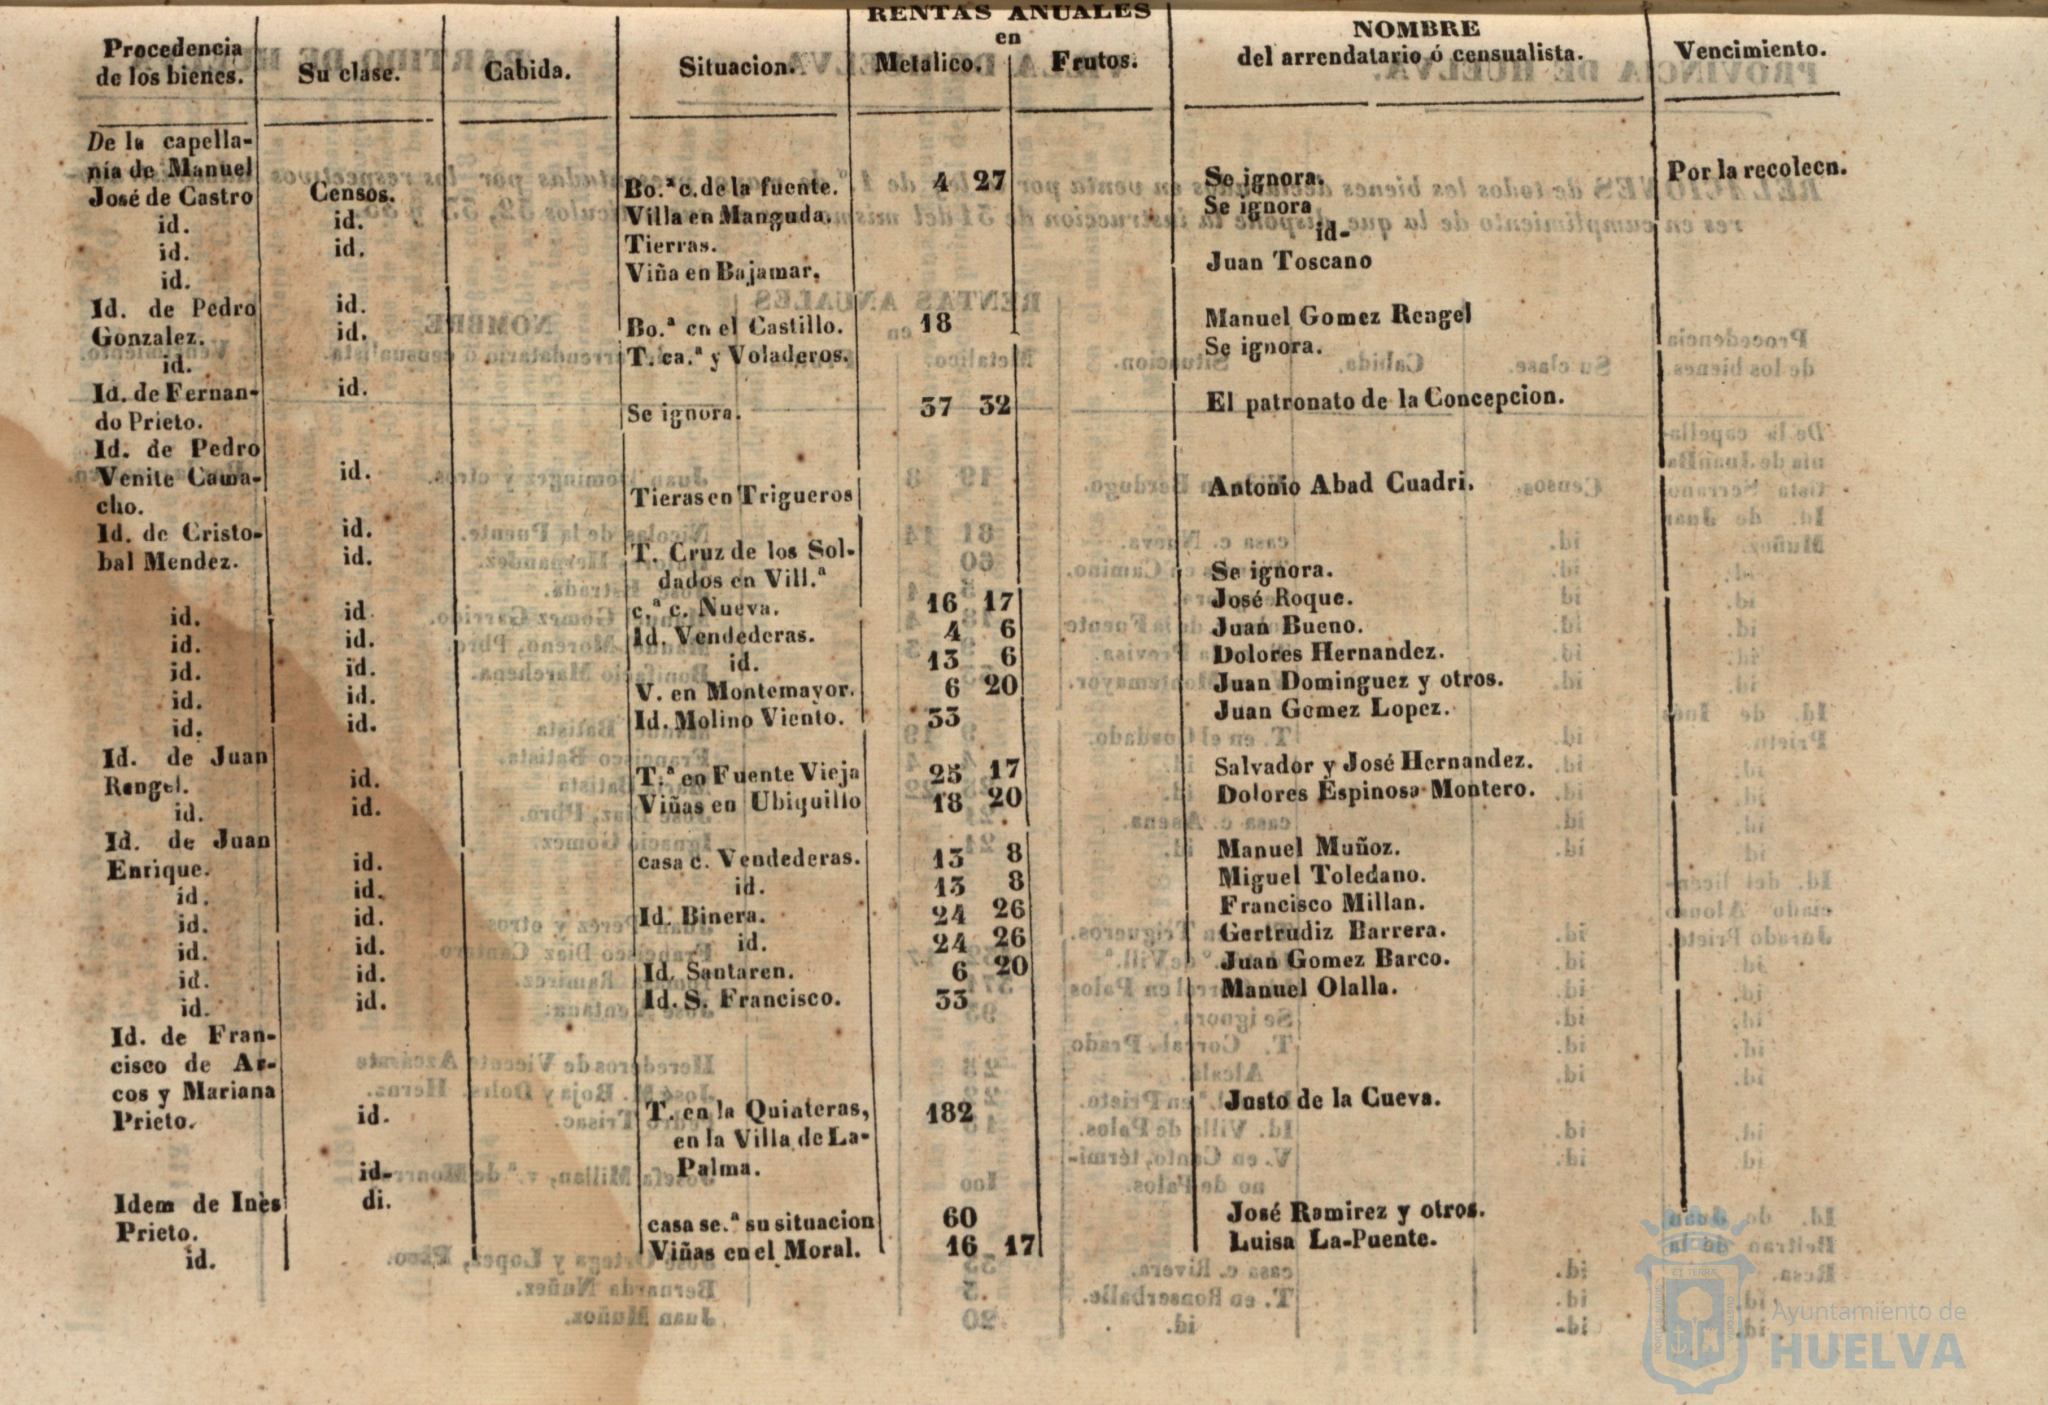 RENTAS ANUALES
en
Procedencia de los bienes. Su clase. Cabida. Situacion. Metalico. Frutos. NOMBRE del arrendatario ó censualista. Vencimiento.
De la capella-
nía de Manuel Por la recolecn.
José de Castro Censos. Bo.ª c. de la fuente. 4 27 Se ignora.
id. id. Villa en Manguda. Se ignora
id. id. Tierras. id-
id. Viña en Bajamar. Juan Toscano
Id. de Pedro id.
Gonzalez. id. Bo.ª en el Castillo. 18 Manuel Gomez Rengel
id. T. ca.ª y Voladeros. Se ignora.
Id. de Fernan- id.
do Prieto. Se ignora. 37 32 El patronato de la Concepcion.
Id. de Pedro
Venite Cama- id.
cho. Tieras en Trigueros Antonio Abad Cuadri.
Id. de Cristo- id.
bal Mendez. id. T. Cruz de los Sol-
dados en Vill.ª Se ignora.
id. id c.ª c. Nueva. 16 17 José Roque.
id. id. Id. Vendederas. 4 6 Juan Bueno.
id. id. id. 13 6 Dolores Hernandez.
id. id. V. en Montemayor. 6 20 Juan Dominguez y otros.
id. id. Id. Molino Viento. 33 Juan Gomez Lopez.
Id. de Juan
Rengel. id. T.ª en Fuente Vieja 25 17 Salvador y José Hernandez.
id. id. Viñas en Ubiquillo 18 20 Dolores Espinosa Montero.
Id. de Juan
Enrique. id. casa c. Vendederas. 13 8 Manuel Muñoz.
id. id. id. 13 8 Miguel Toledano.
id. id. Id. Binera. 24 26 Francisco Millan.
id. id. id. 24 26 Gertrudiz Barrera.
id. id. Id. Santaren. 6 20 Juan Gomez Barco.
id. id. Id. S. Francisco. 33 Manuel Olalla.
Id. de Fran-
cisco de Ar-
cos y Mariana
Prieto. id. T. en la Quinteras, 182 Justo de la Cueva.
en la Villa de La-
id- Palma.
Idem de Inès di.
Prieto. casa se.ª su situacion 60 José Ramirez y otros.
id. Viñas en el Moral. 16 17 Luisa La-Puente.
Ayuntamiento de
HUELVA